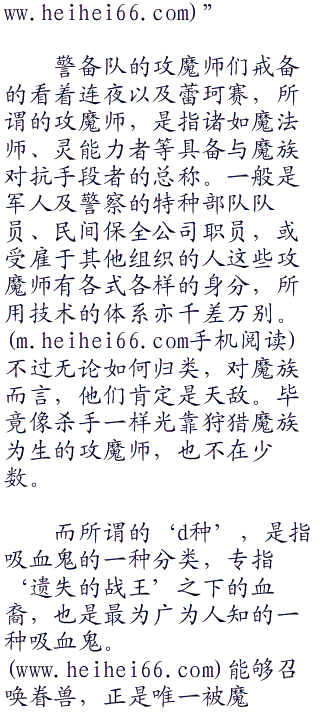 ww.heihei66.com)”
警备队的攻魔师们戒备
的看着连夜以及蕾珂赛，所
谓的攻魔师，是指诸如魔法
师、灵能力者等具备与魔族
对抗手段者的总称。一般是
军人及警察的特种部队队
员、民间保全公司职员，或
受雇于其他组织的人这些攻
魔师有各式各样的身分，所
用技术的体系亦千差万别。
(m.heihei66.com手机阅读)
不过无论如何归类，对魔族
而言，他们肯定是天敌。毕
竟像杀手一样光靠狩猎魔族
为生的攻魔师，也不在少
数。
而所谓的‘d种’，是指
吸血鬼的一种分类，专指
‘遗失的战王’之下的血
裔，也是最为广为人知的一
种吸血鬼。
(www.heihei66.com)能够召
唤眷兽，正是唯一被魔